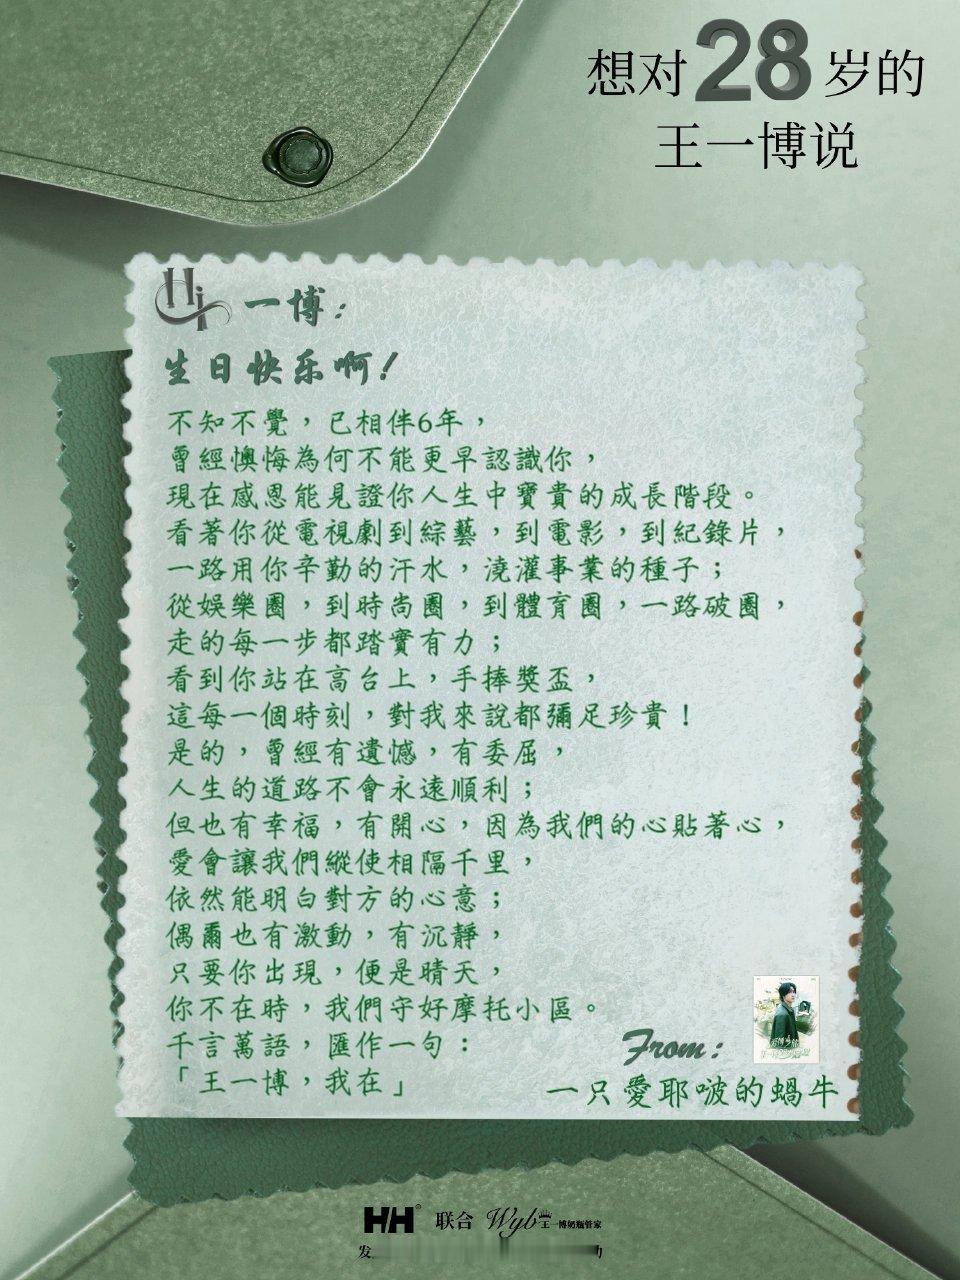 想对28岁的
王一博说
Hi 一博：
生日快乐啊！
不知不覺，已相伴6年，
曾經懊悔為何不能更早認識你，
現在感恩能見證你人生中寶貴的成長階段。
看著你從電視劇到綜藝，到電影，到紀錄片，
一路用你辛勤的汗水，澆灌事業的種子；
從娛樂圈，到時尚圈，到體育圈，一路破圈，
走的每一步都踏實有力；
看到你站在高台上，手捧獎盃，
這每一個時刻，對我來說都彌足珍貴！
是的，曾經有遺憾，有委屈，
人生的道路不會永遠順利；
但也有幸福，有開心，因為我們的心貼著心，
愛會讓我們縱使相隔千里，
依然能明白對方的心意；
偶爾也有激動，有沉靜，
只要你出現，便是晴天，
你不在時，我們守好摩托小區。
千言萬語，匯作一句：
「王一博，我在」
From：
一只愛耶啵的蝸牛
HH® 联合 Wyb王一博奶瓶管家
发